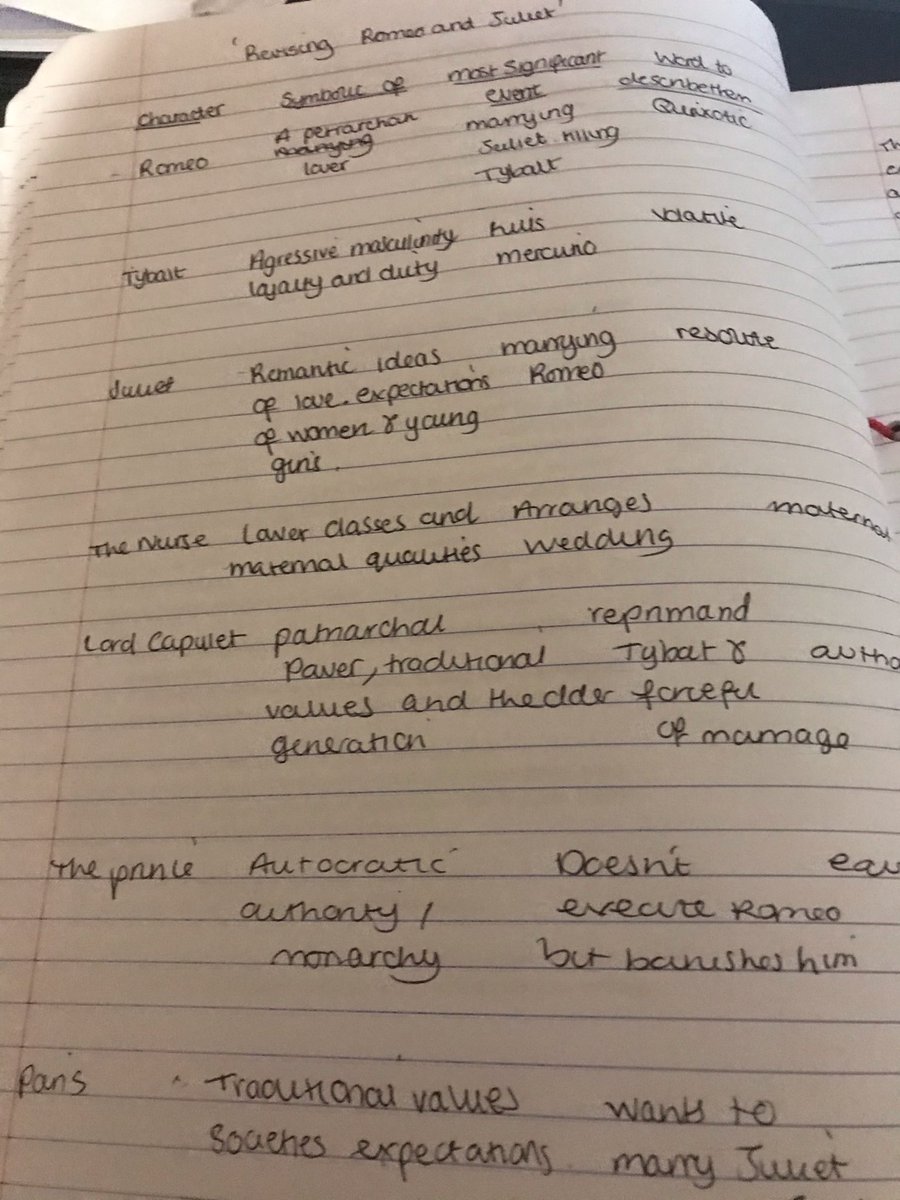 'Revising Romeo and Juliet'
Character Symbolic of most significant event Word to describe them
Romeo A petrarchan lover marrying Juliet killing Tybalt Quixotic
Tybalt Agressive masculinity loyalty and duty kills mercutio volatile
Juliet Romantic ideas of love. expectations of women & young girls. marrying Romeo resolute
The Nurse Lower classes and maternal qualities Arranges wedding maternal
Lord Capulet patriarchal power, traditional values and the older generation reprimand Tybalt & forceful of marriage autho
The prince Autocratic authority / monarchy Doesn't execute Romeo but banishes him
Paris Traditional values societies expectations wants to marry Juliet